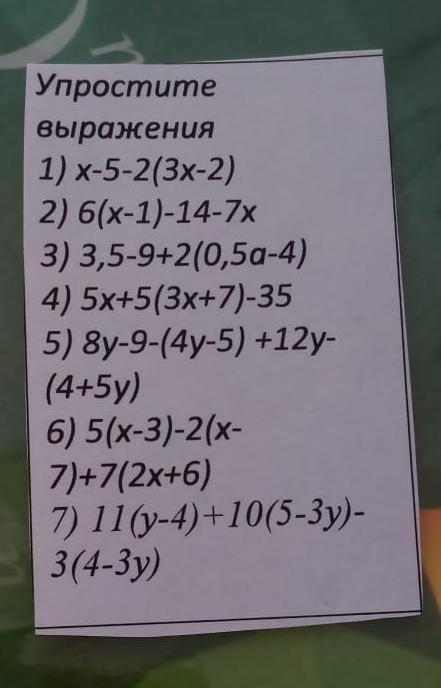 Упростите
выражения
1) х-5-2(3х-2)
2) 6(х-1)-14-7х
3) 3,5-9+2(0,5а-4)
4) 5х+5(3х+7)-35
5) 8у-9-(4у-5) +12у-
(4+5у)
6) 5(х-3)-2(х-
7)+7(2х+6)
7) 11(у-4)+10(5-3у)-
3(4-3у)